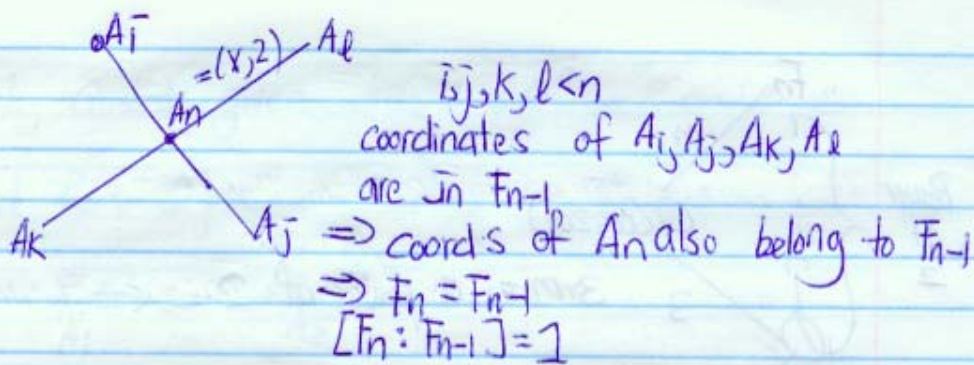 Ai
Al
=(x,2)
An
i,j,k,l<n
coordinates of Ai, Aj, Ak, Al
are in Fn-1
Ak
Aj
⇒ coords of An also belong to Fn-1
⇒ Fn = Fn-1
[Fn : Fn-1] = 1